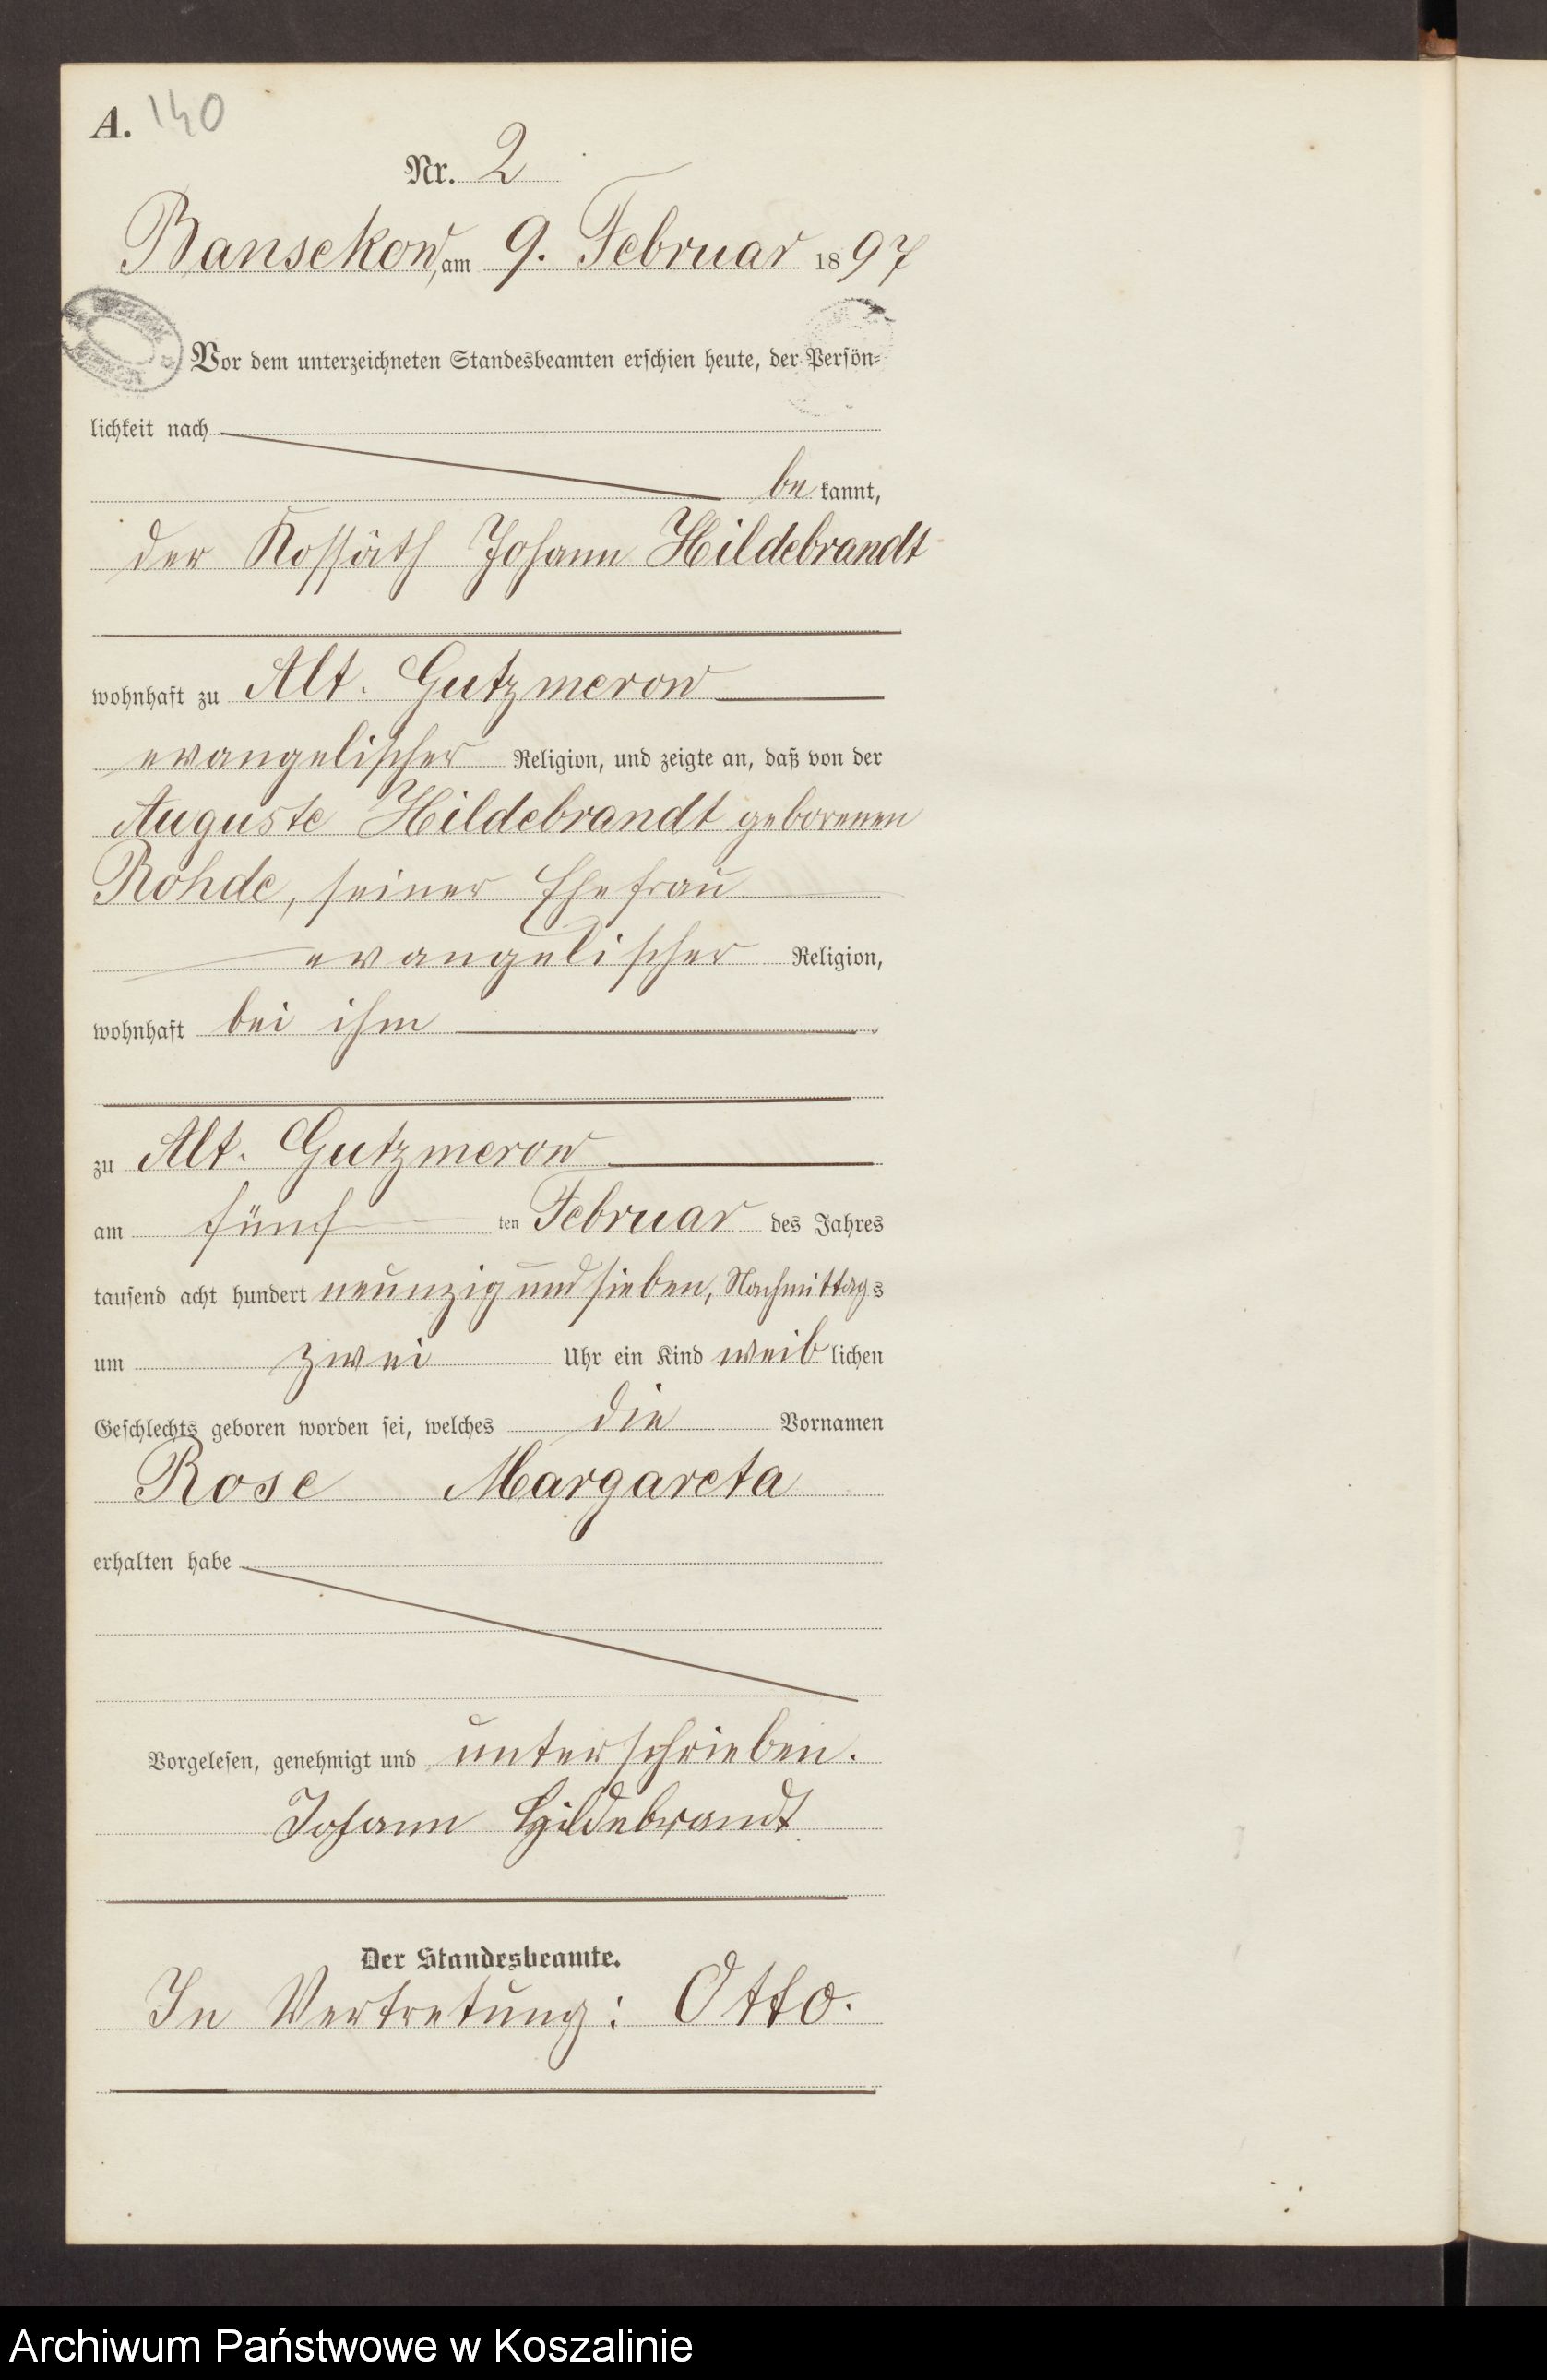 A. 140
Nr. 2
Bansekow, am 9. Februar 1897
Vor dem unterzeichneten Standesbeamten erschien heute, der Persön-
lichkeit nach
be kannt,
der Kossäth Johann Hildebrandt
wohnhaft zu Alt. Gutzmerow
evangelischer Religion, und zeigte an, daß von der
Auguste Hildebrandt geborenen
Rohde, seiner Ehefrau
evangelischer Religion,
wohnhaft bei ihm
zu Alt. Gutzmerow
am fünf ten Februar des Jahres
tausend acht hundert neunzig und sieben, Nachmittags
um zwei Uhr ein Kind weiblichen
Geschlechts geboren worden sei, welches die Vornamen
Rose Margareta
erhalten habe
Vorgelesen, genehmigt und unterschrieben.
Johann Hildebrandt
Der Standesbeamte.
In Vertretung: Otto.
Archiwum Państwowe w Koszalinie